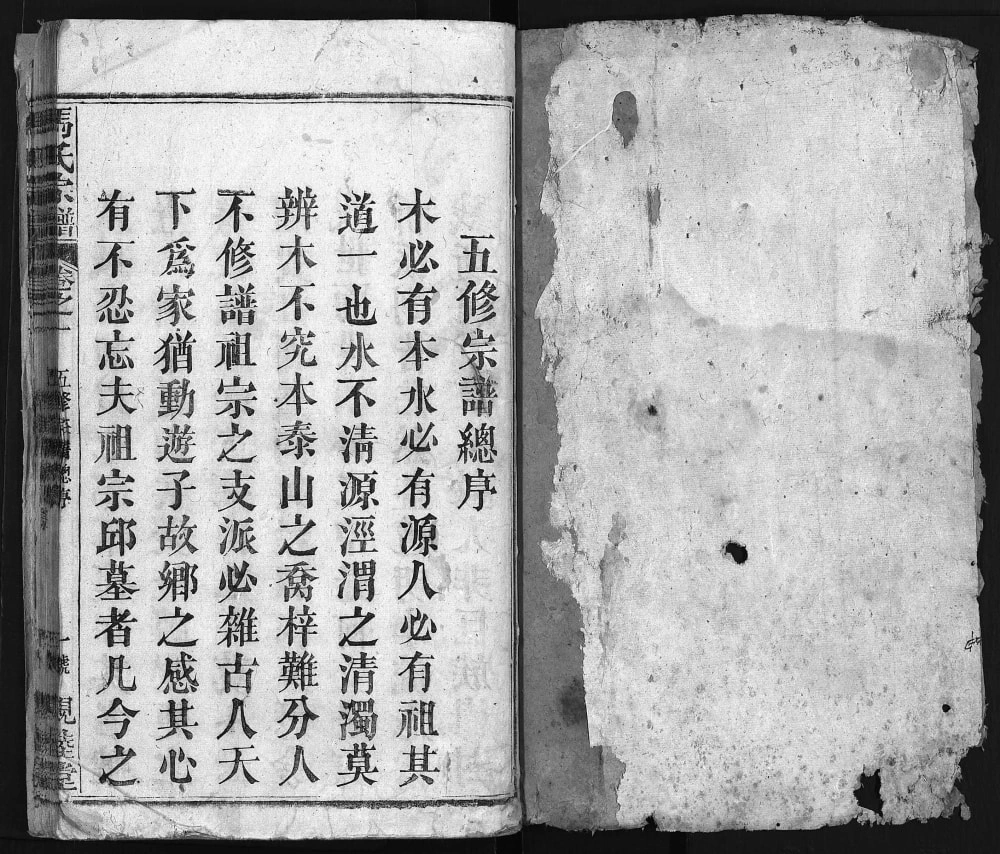 五修宗譜總序
木必有本水必有源人必有祖其
道一也水不清源涇渭之清濁莫
辨木不究本泰山之喬梓難分人
不修譜祖宗之支派必雜古人天
下爲家猶動遊子故鄉之感其心
有不忍忘夫祖宗邱墓者凡今之
馬氏宗譜
卷之一
五修宗譜總序
一號
親睦堂